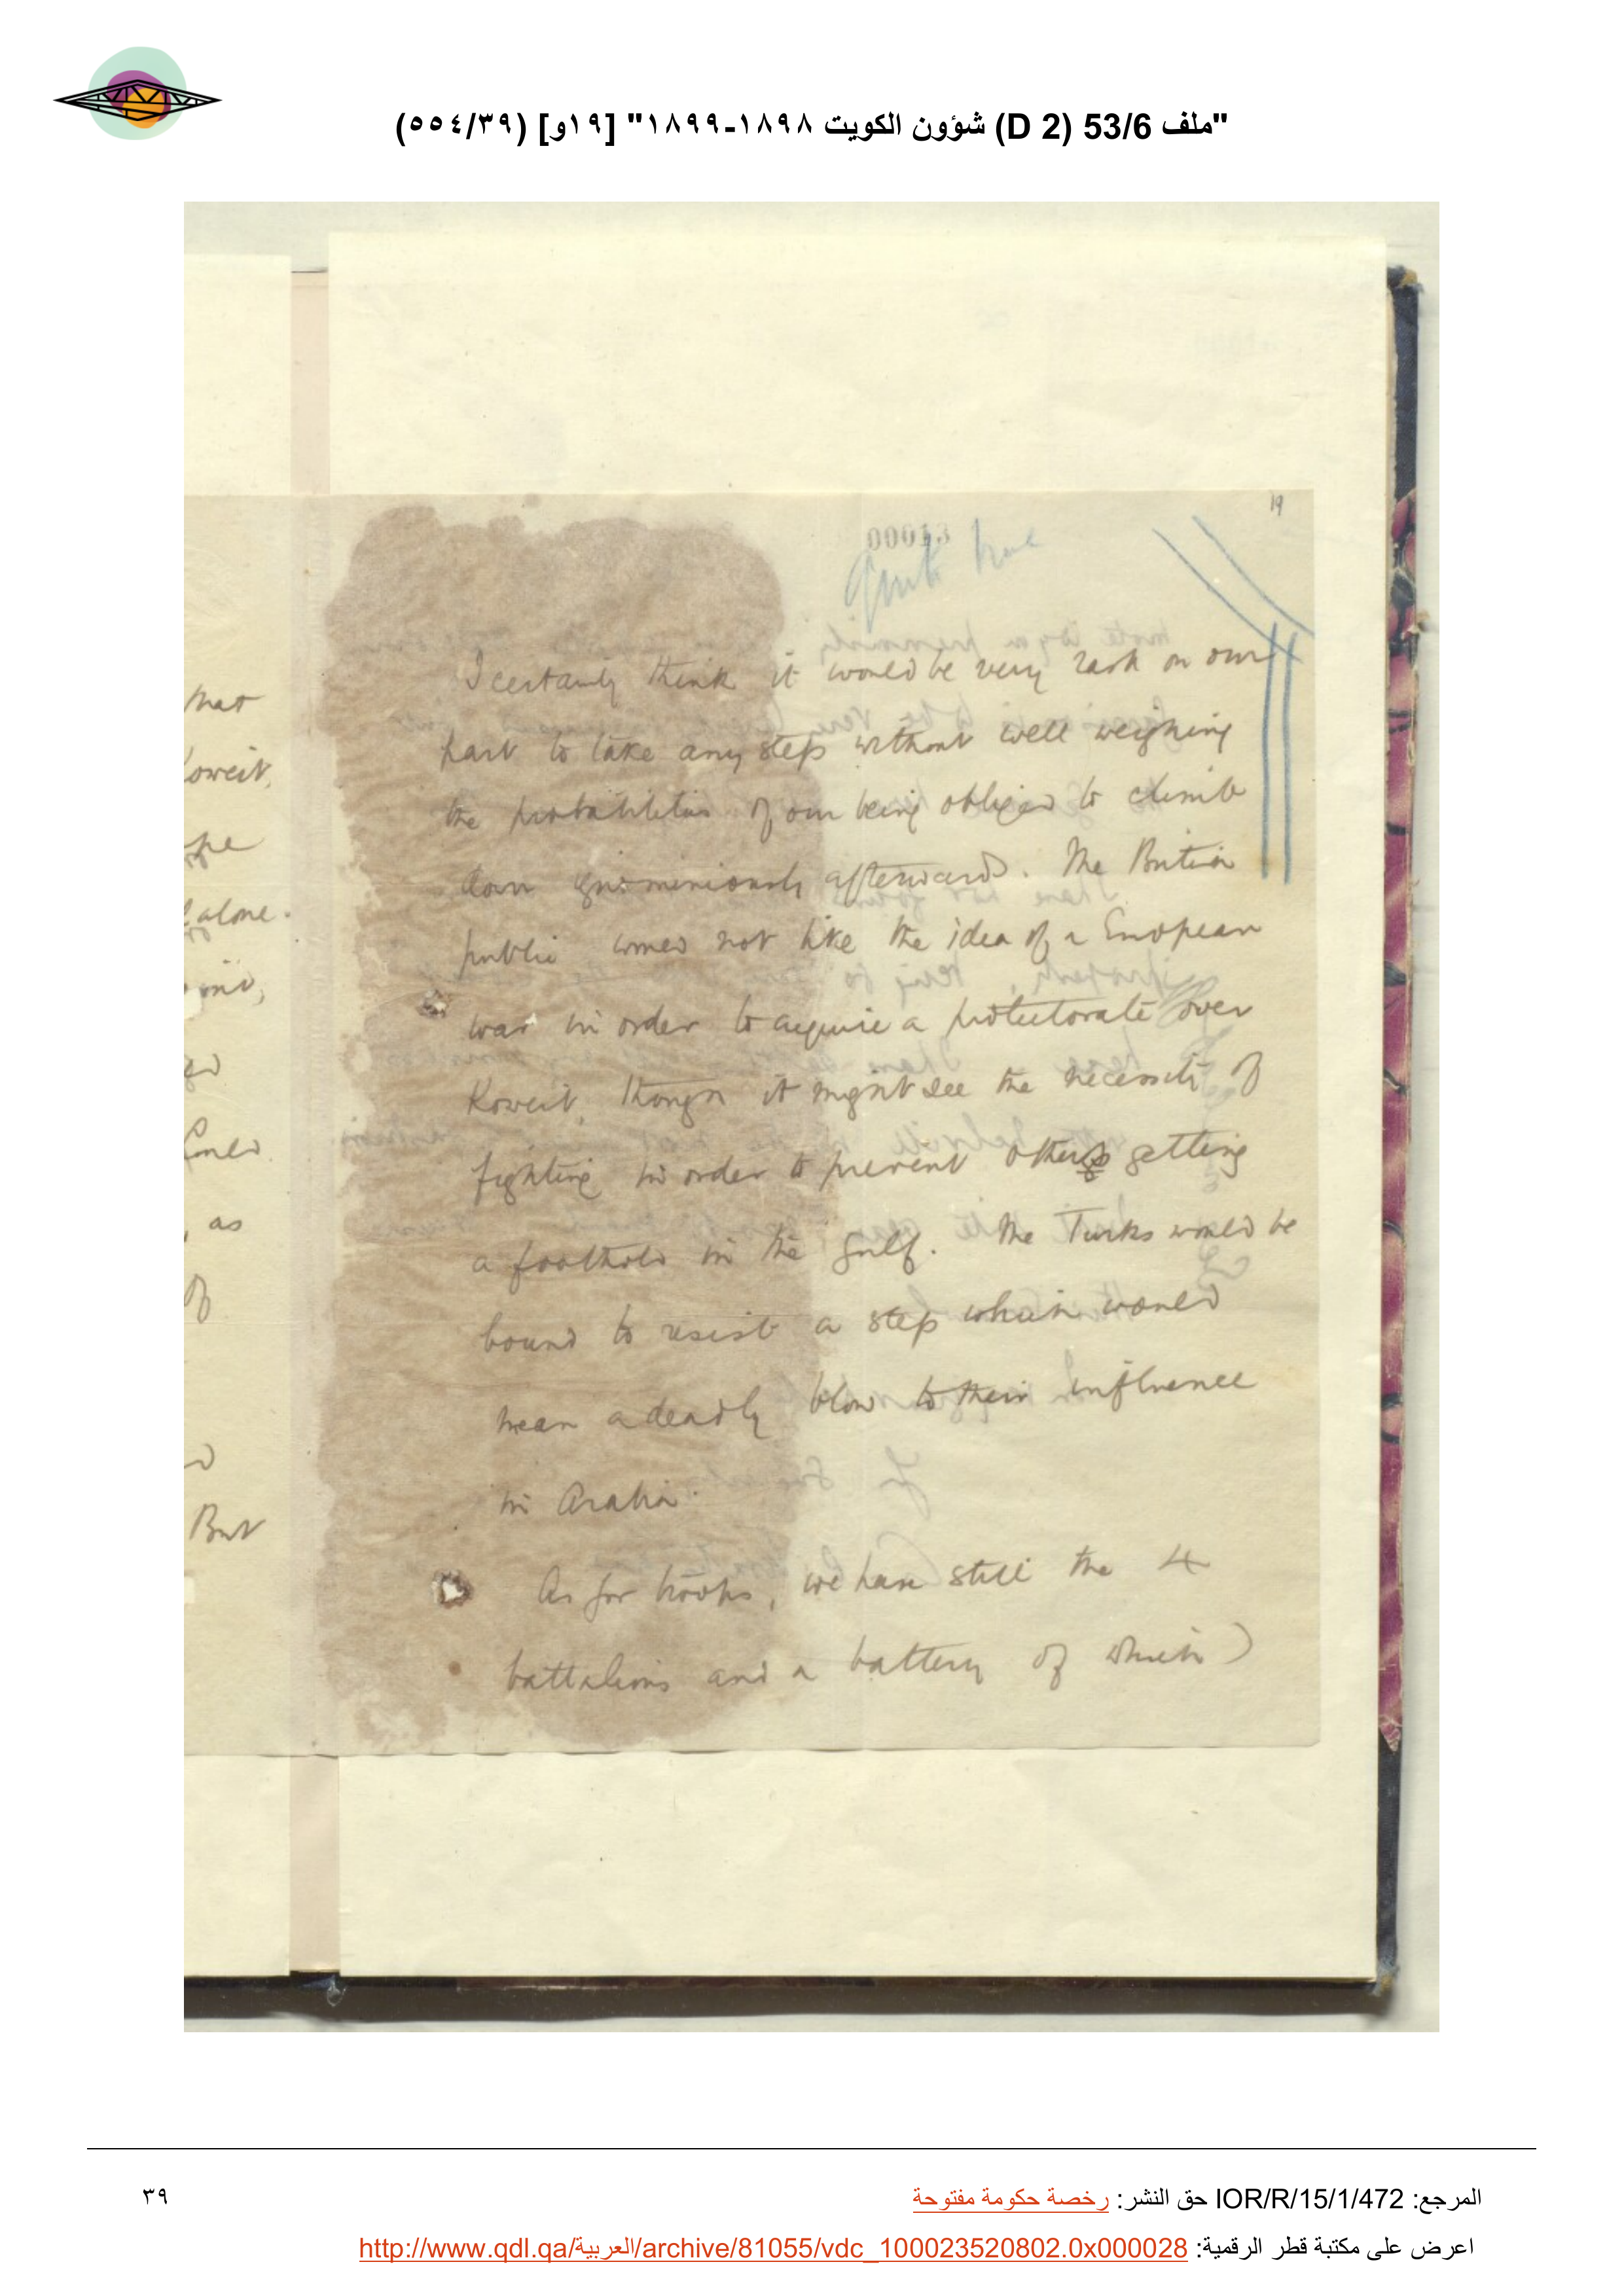 "ملف 53/6 (D 2) شؤون الكويت ١٨٩٨-١٨٩٩" [١٩و] (٥٥٤/٣٩)
19
00013
Quite true
I certainly think it would be very rash on our
part to take any step without well weighing
the probabilities of our being obliged to climb
down ignominiously afterwards. The British
public would not like the idea of a European
war in order to acquire a protectorate over
Koweit, though it might see the necessity of
fighting in order to prevent others getting
a foothold in the Gulf. The Turks would be
bound to resist a step which would
mean a deadly blow to their influence
in Arabia.
As for troops, we have still the 4
battalions and a battery of which
that
oweit,
alone.
ould
, as
of
But
المرجع: IOR/R/15/1/472 حق النشر: رخصة حكومة مفتوحة
٣٩
اعرض على مكتبة قطر الرقمية: http://www.qdl.qa/العربية/archive/81055/vdc_100023520802.0x000028